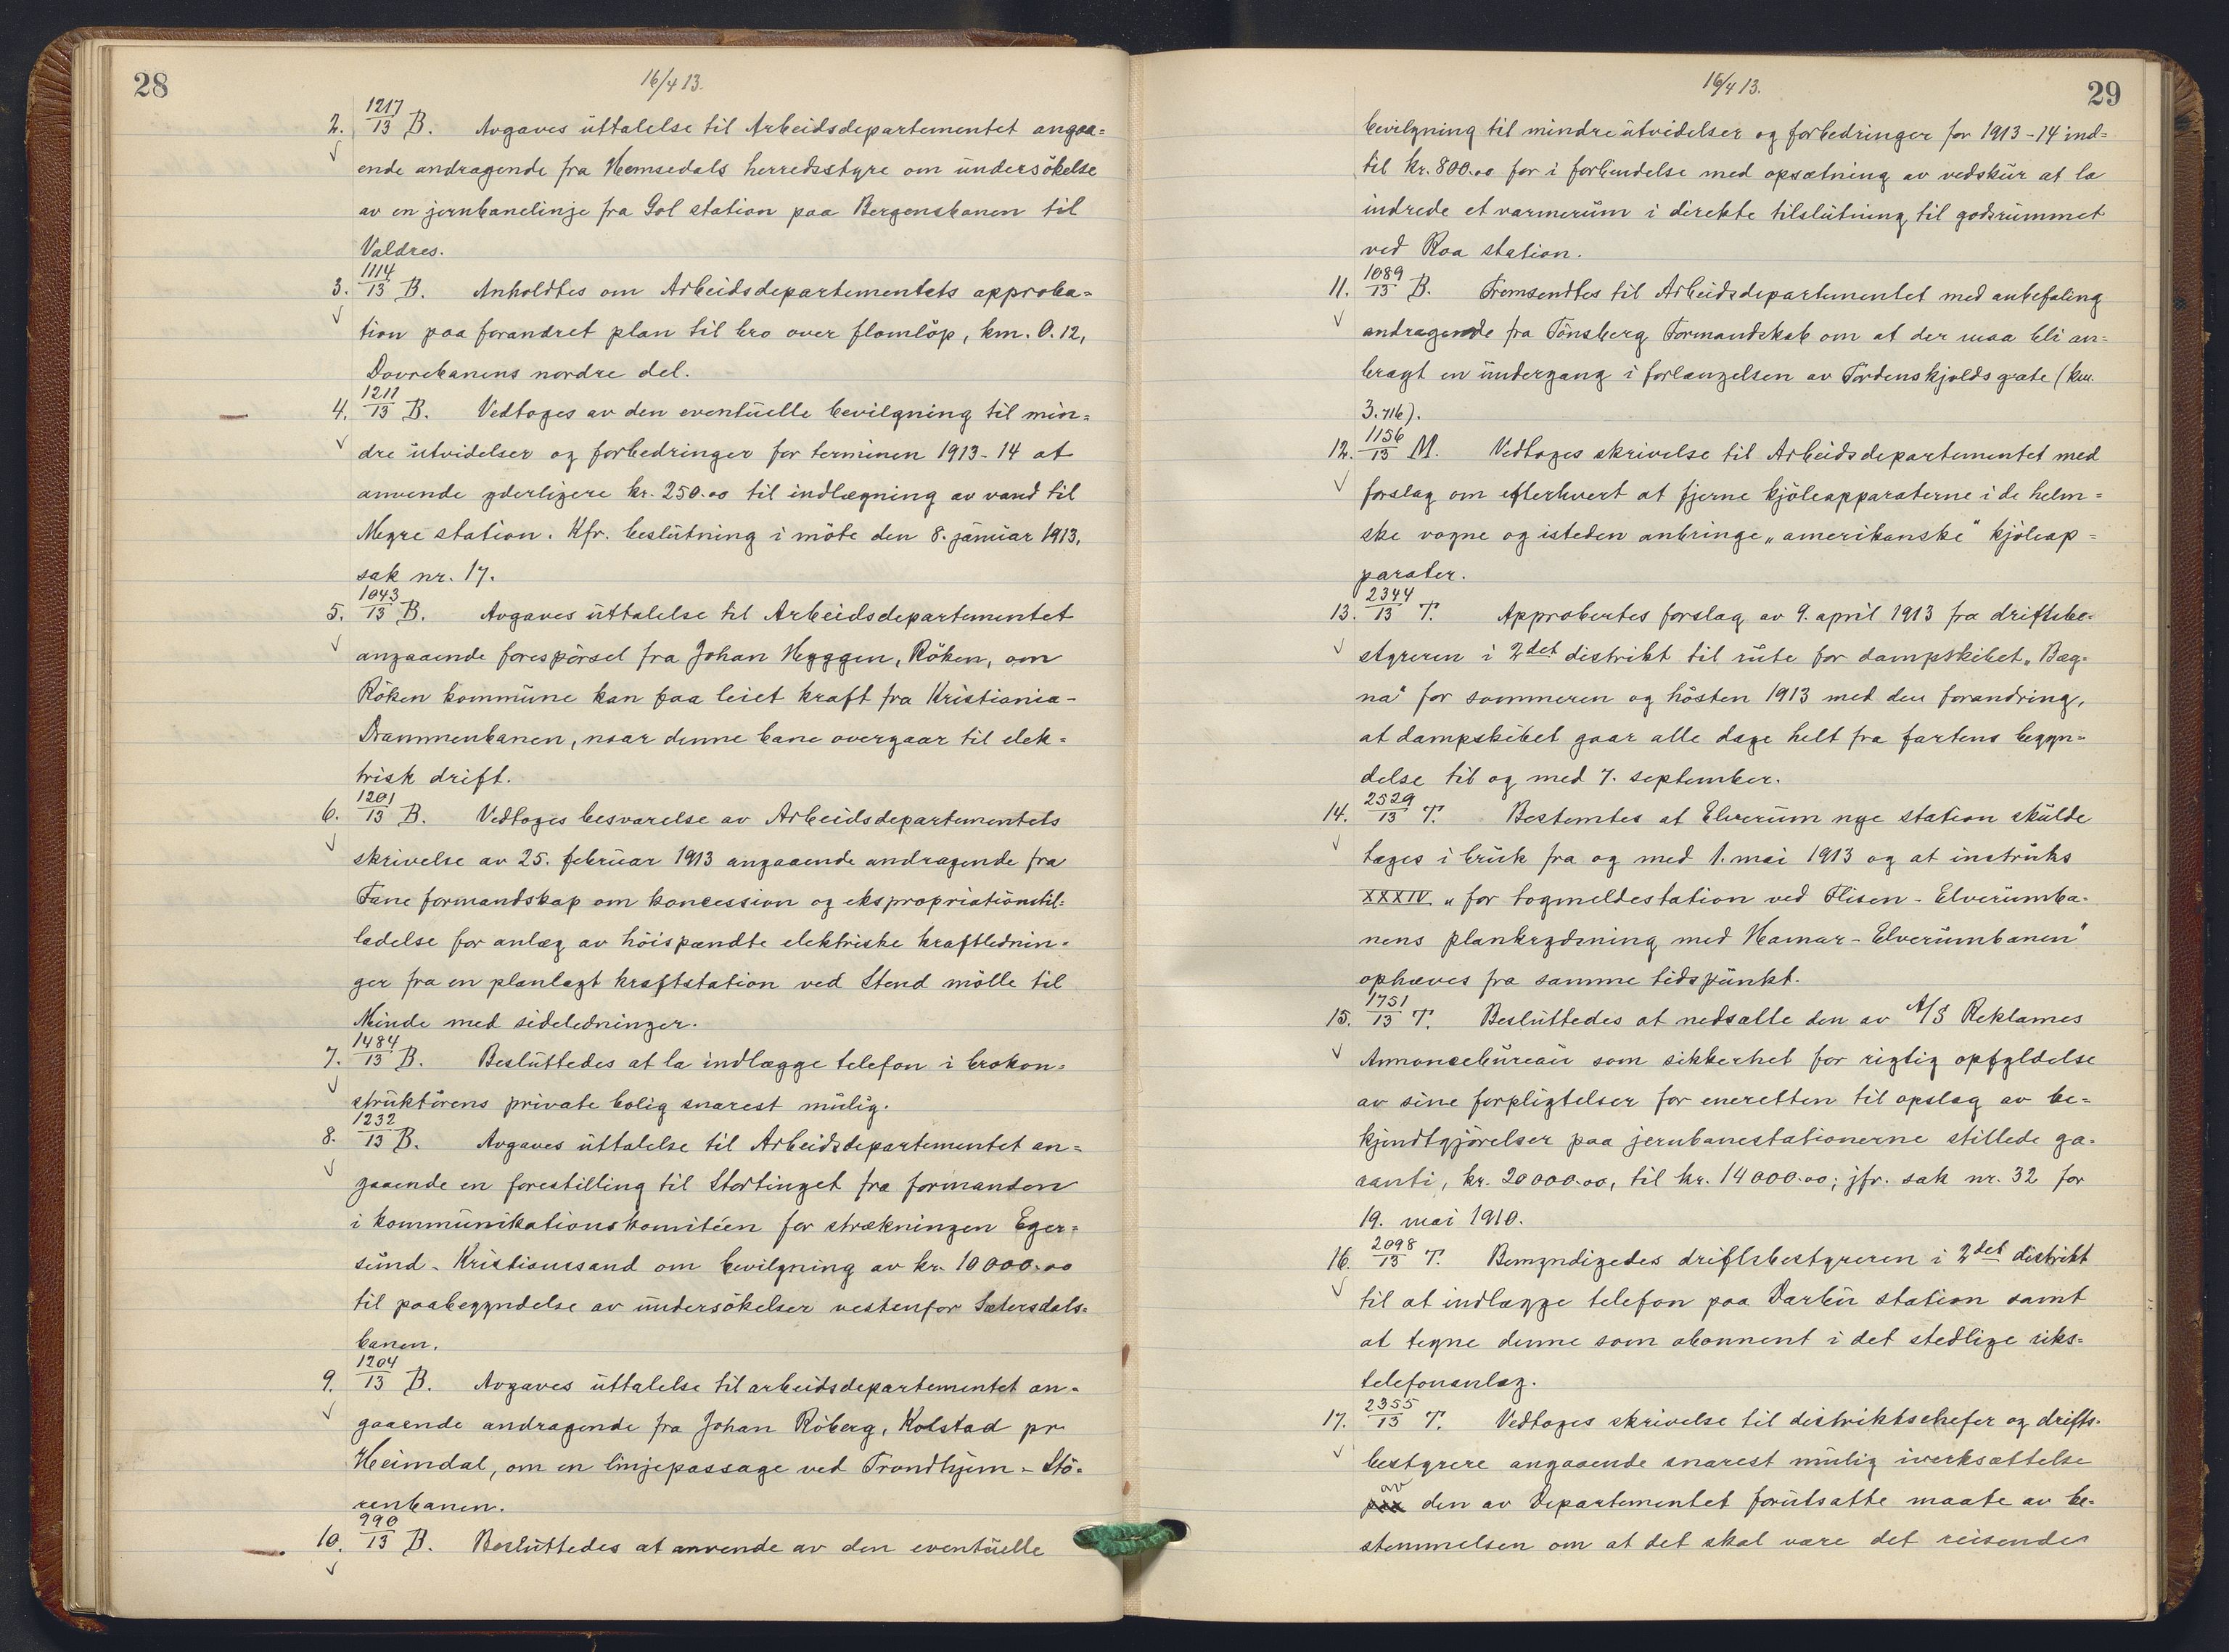 28
16/4 13.
2. 1217/13 B. Avgaves uttalelse til Arbeidsdepartementet angaa=
ende andragende fra Hemsedals herredsstyre om undersökelse
av en jernbanelinje fra Gol station paa Bergensbanen til
Valdres.
3. 1114/13 B. Anholdtes om Arbeidsdepartementets approba=
tion paa forandret plan til bro over flomlöp, km. 0.12,
Dovrebanens nordre del.
4. 1211/13 B. Vedtoges av den eventuelle bevilgning til min=
dre utvidelser og forbedringer for terminen 1913-14 at
anvende yderligere kr. 250.00 til indlægning av vand til
Megre station. Kfr. beslutning i möte den 8. januar 1913,
sak nr. 17.
5. 1043/13 B. Avgaves uttalelse til Arbeidsdepartementet
angaaende forespörsel fra Johan Heggen, Röken, om
Röken kommune kan faa leiet kraft fra Kristiania-
Drammenbanen, naar denne bane overgaar til elek=
trisk drift.
6. 1201/13 B. Vedtoges besvarelse av Arbeidsdepartementets
skrivelse av 25. februar 1913 angaaende andragende fra
Fane formandskap om koncession og ekspropriationstil=
ladelse for anlæg av höispændte elektriske kraftlednin=
ger fra en planlagt kraftstation ved Stend mölle til
Minde med sideledninger.
7. 1484/13 B. Besluttedes at la indlægge telefon i brokon=
struktörens private bolig snarest mulig.
8. 1232/13 B. Avgaves uttalelse til Arbeidsdepartementet an=
gaaende en forestilling til Stortinget fra formanden
i kommunikationskomitéen for strækningen Eger=
sund - Kristianssand om bevilgning av kr. 10 000.00
til paabegyndelse av undersökelser vestenfor Sætersdals=
banen.
9. 1204/13 B. Avgaves uttalelse til arbeidsdepartementet an=
gaaende andragende fra Johan Röberg, Kolstad pr
Heimdal, om en linjepassage ved Trondhjem - Stö=
renbanen.
10. 990/13 B. Besluttedes at anvende av den eventuelle
29
16/4 13.
bevilgning til mindre utvidelser og forbedringer for 1913-14 ind=
til kr. 800.00 for i forbindelse med opsætning av vedskur at la
indrede et varmerum i direkte tilslutning til godsrummet
ved Roa station.
11. 1089/13 B. Fremsendtes til Arbeidsdepartementet med anbefaling
andragende fra Tönsberg Formandskab om at der maa bli an=
bragt en undergang i forlængelsen av Tordenskjolds gate (km.
3.716).
12. 1156/13 M. Vedtoges skrivelse til Arbeidsdepartementet med
forslag om efterhvert at fjerne kjöleapparaterne i de helm=
ske vogne og isteden anbringe „amerikanske“ kjöleap=
parater.
13. 2344/13 T. Approbertes forslag av 9. april 1913 fra driftsbe=
styreren i 2det distrikt til rute for dampskibet „Bæg=
na“ for sommeren og hösten 1913 med den forandring,
at dampskibet gaar alle dage helt fra fartens begyn=
delse til og med 7. september.
14. 2529/13 T. Bestemtes at Elverum nye station skulde
tages i bruk fra og med 1. mai 1913 og at instruks
XXXIV „for togmeldestation ved Flisen - Elverumba=
nens plankrydsning med Hamar - Elverumbanen“
ophæves fra samme tidspunkt.
15. 1751/13 T. Besluttedes at nedsætte den av A/S Reklames
Annoncebureau som sikkerhet for rigtig opfyldelse
av sine forpligtelser for eneretten til opslag av be=
kjendtgjörelser paa jernbanestationerne stillede ga=
ranti, kr. 20 000.00, til kr. 14 000.00; jfr. sak nr. 32 for
19. mai 1910.
16. 2098/13 T. Bemyndigedes driftsbestyreren i 2det distrikt
til at indlægge telefon paa Darbu station samt
at tegne denne som abonnent i det stedlige riks=
telefonanlæg.
17. 2355/13 T. Vedtoges skrivelse til distriktschefer og drifts=
bestyrere angaaende snarest mulig iverksættelse
av den av Departementet forutsatte maate av be=
stemmelsen om at det skal være det reisende